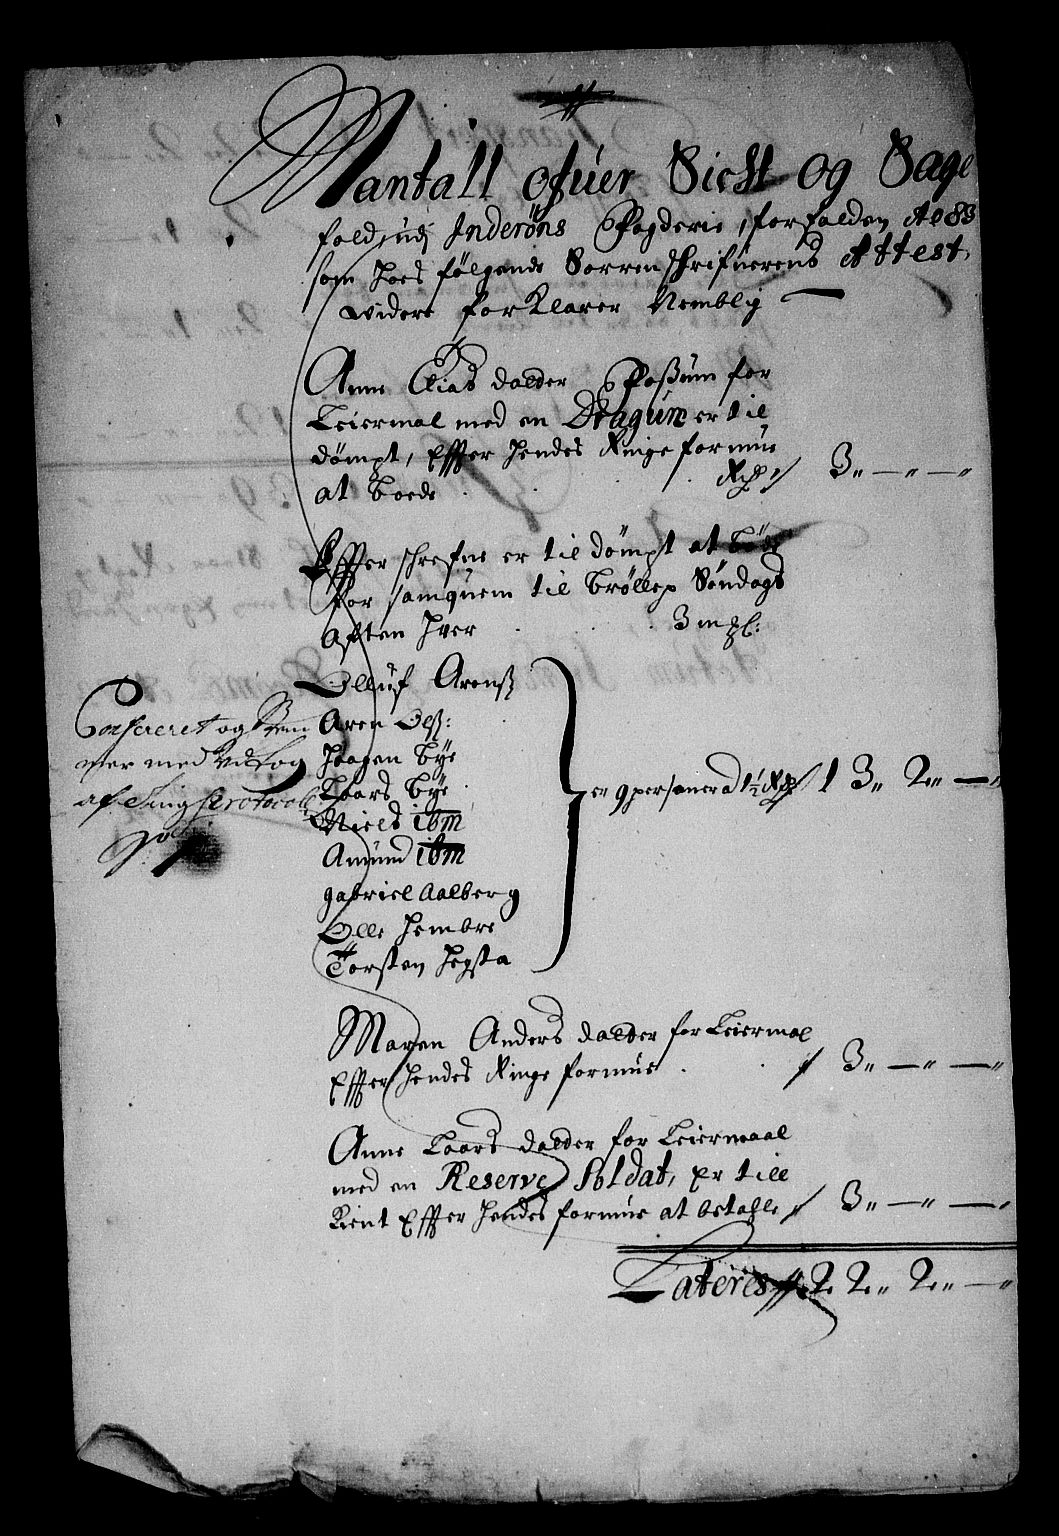 Mantall ofuer Sicht og Sage
fald, udj Inderøns Fogderie, forfalden Ao 83
som hoes følgende Sorrenschrifuerens Attest,
widere forklarer Nemblig
Anne Elias datter for
Leiermal med en Dragun er til
dømpt, Effter hendes Ringe formue
at bøde . . . Rdr // 3 " — " — "
Effter schrefne er til dømpt at bøde
for samquem til brøllep Søndags
Aften hver . . 3 mk sl:
Olluf Arenß
Aren Olß:
Haagen bye
Laars bye
Niels ibm
Amund ibm
gabriel Aalberg
Olle Hembre
Torsten Hegsta
er 9 personer a 1½ Rdr // 13 " 2 " — "
Confereret og Stem
mer med
af Ting Protocoll
Maren Anders datter for Leiermal
Effter hendes Ringe formue . . // 3 " — " — "
Anne Laars datter for Leiermaal
med en Reserve Soldat, Er till
kient Effter hendes formue at betahle // 3 " — " — "
Lateres // 22 " 2 " — "